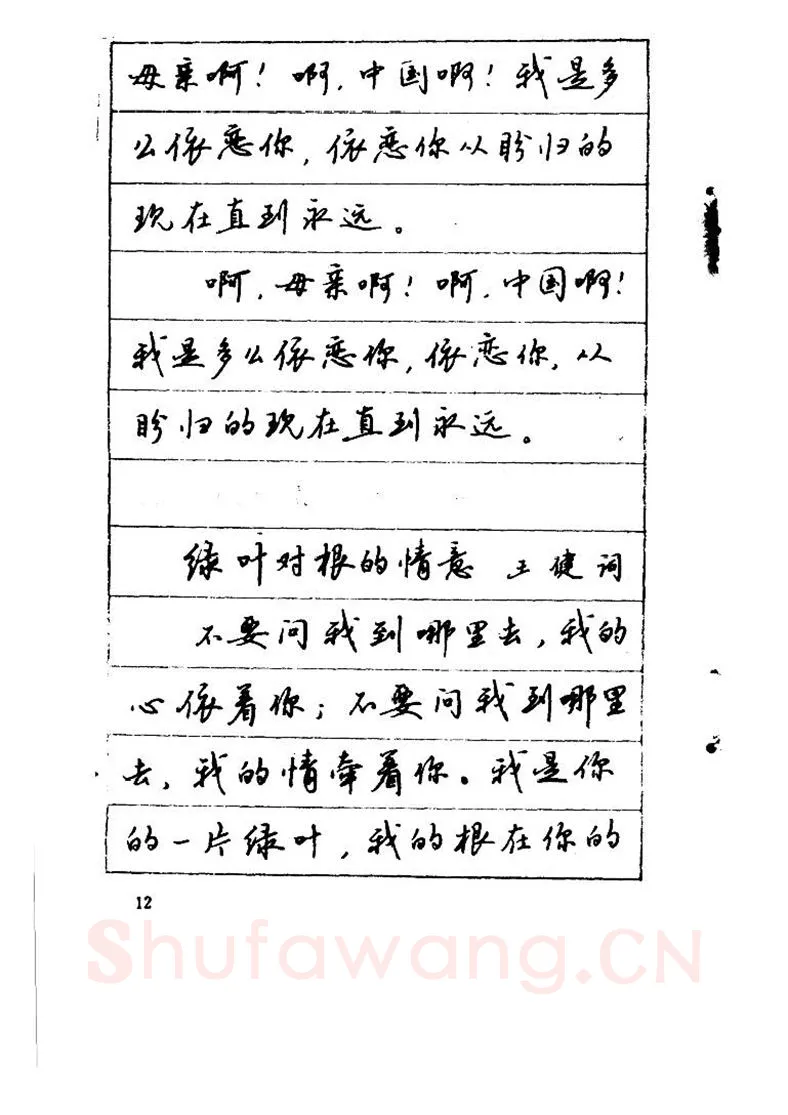 母亲啊！啊，中国啊！我是多
么依恋你，依恋你从盼归的
现在直到永远。
啊，母亲啊！啊，中国啊！
我是多么依恋你，依恋你，从
盼归的现在直到永远。
绿叶对根的情意 王健词
不要问我到哪里去，我的
心依着你；不要问我到哪里
去，我的情牵着你。我是你
的一片绿叶，我的根在你的
12
Shufawang.CN